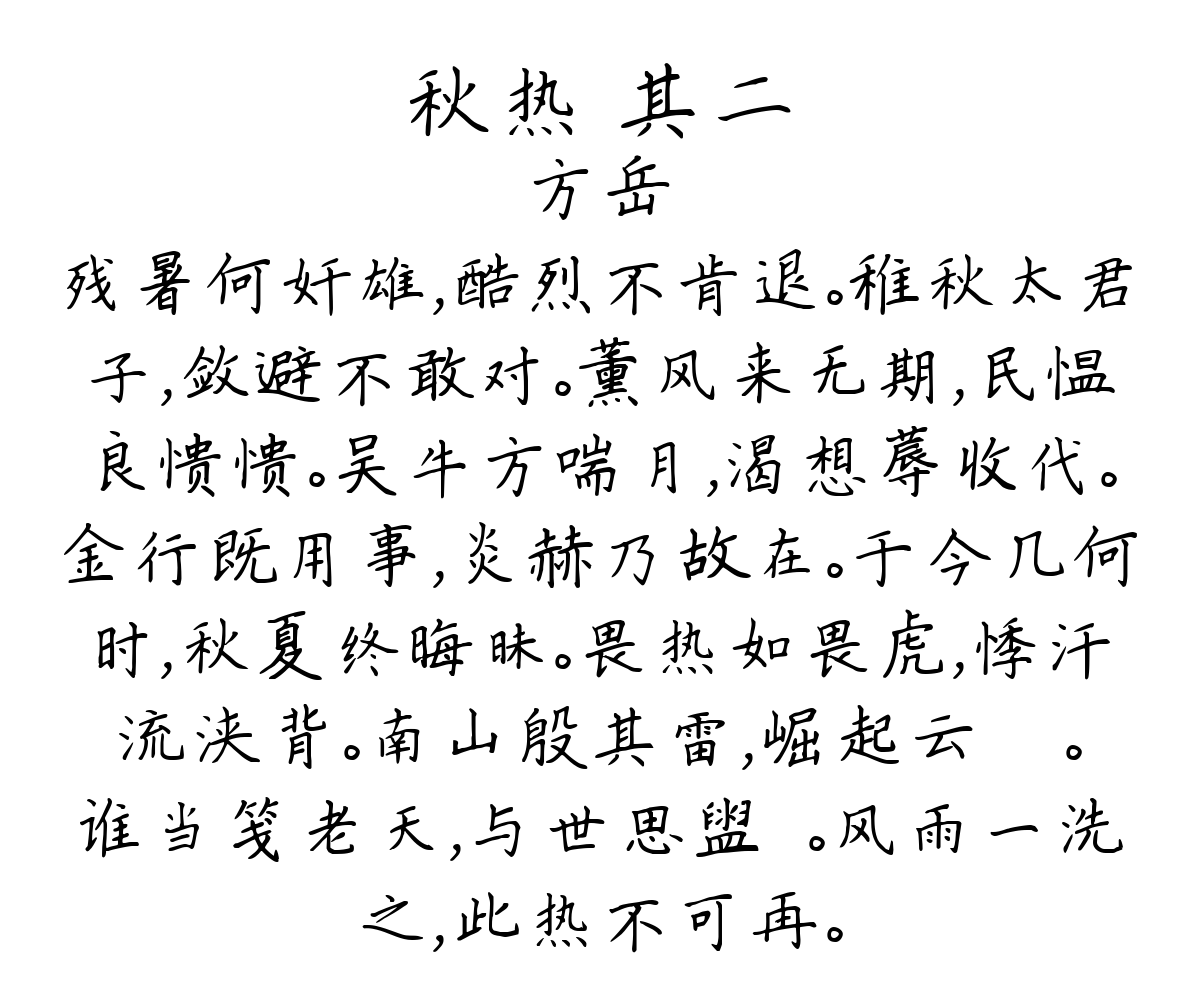 秋热 其二
方岳
残暑何奸雄,酷烈不肯退。稚秋太君
子,敛避不敢对。薰风来无期,民愠
良愦愦。吴牛方喘月,渴想蓐收代。
金行既用事,炎赫乃故在。于今几何
时,秋夏终晦昧。畏热如畏虎,悸汗
流浃背。南山殷其雷,崛起云 。
谁当笺老天,与世思盥 。风雨一洗
之,此热不可再。